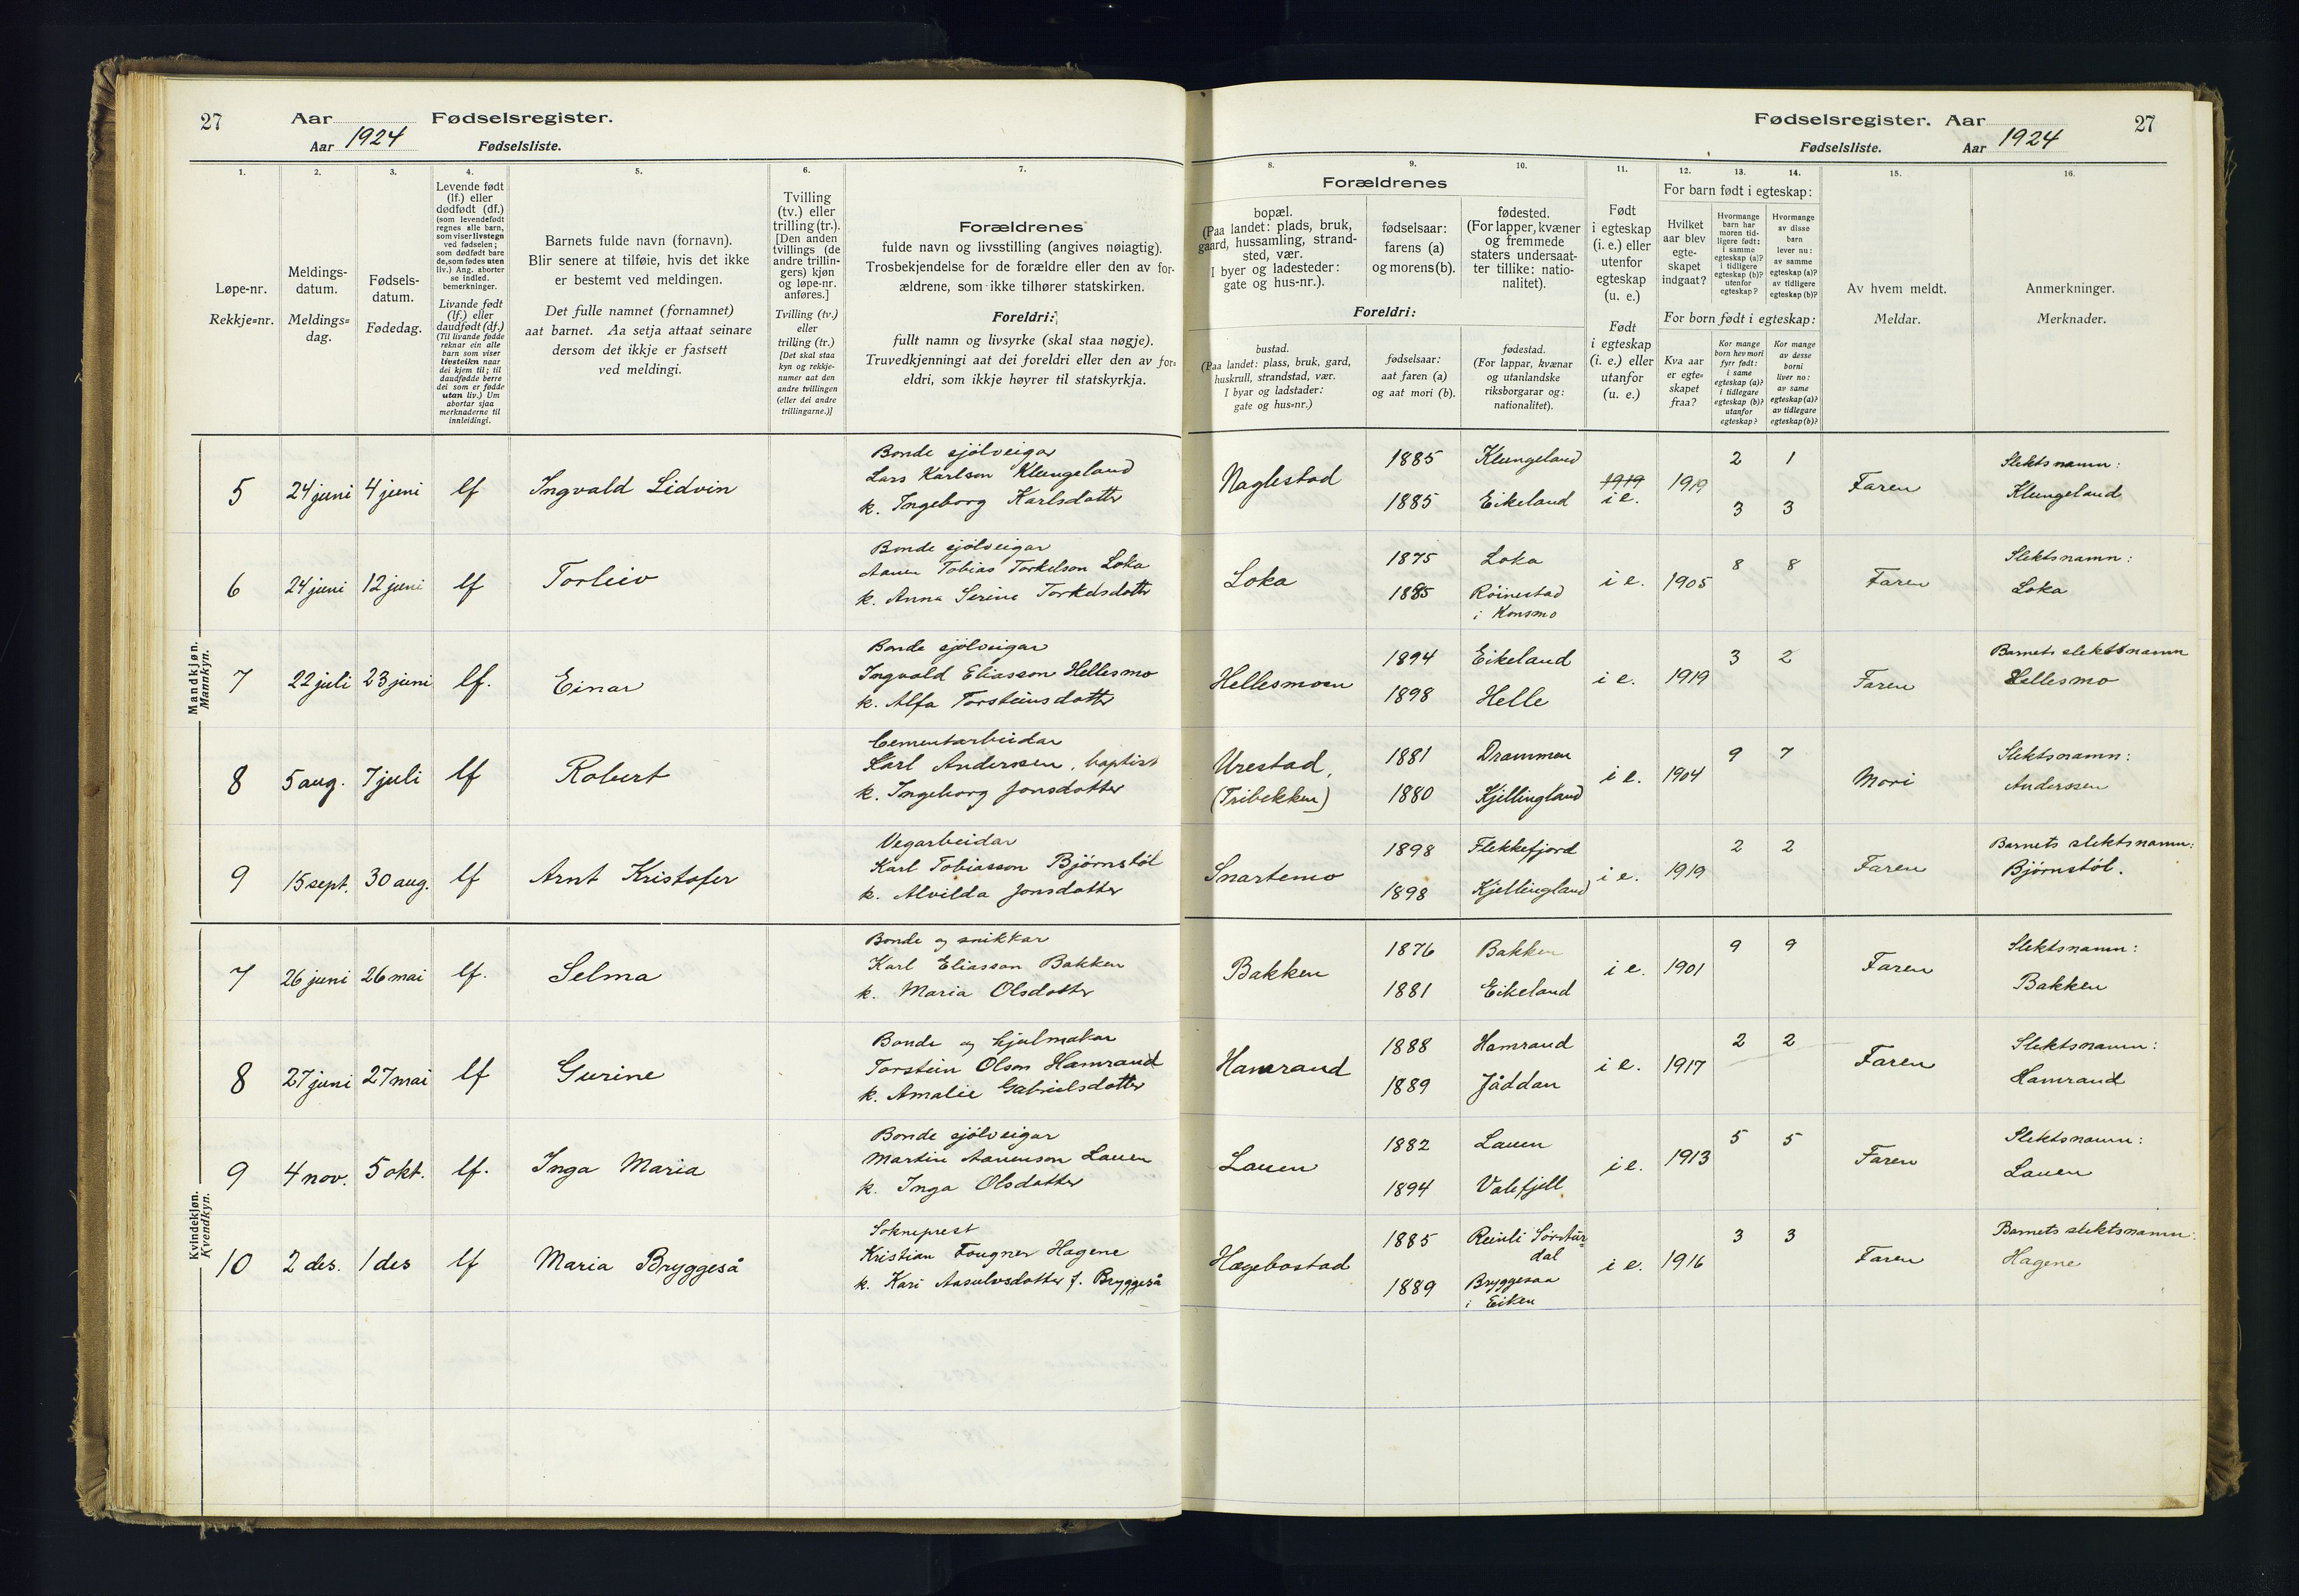 27
Aar
Fødselsregister.
Aar 1924
Fødselsliste.
1.
2.
3.
4.
5.
6.
7.
Løpe-nr.
Rekkje=nr.
Meldings-
datum.
Meldings=
dag.
Fødsels-
datum.
Fødedag.
Levende født
(lf.) eller
dødfødt (df.)
(som levendefødt
regnes alle barn,
som viser livstegn
ved fødselen;
som dødfødt bare
de, som fødes uten
liv.) Ang. aborter
se indled.
bemerkninger.
Livande født
(lf.) eller
daudfødt (df.)
(Til livande fødde
reknar ein alle
barn som viser
livsteikn naar
dei kjem til; til
daudfødde berre
dei som er fødde
utan liv.) Um
abortar sjaa
merknaderne til
innleidingi.
Barnets fulde navn (fornavn).
Blir senere at tilføie, hvis det ikke
er bestemt ved meldingen.
Det fulle namnet (fornamnet)
aat barnet. Aa setja attaat seinare
dersom det ikkje er fastsett
ved meldingi.
Tvilling
(tv.) eller
trilling (tr.).
[Den anden
tvillings (de
andre trillin-
gers) kjøn
og løpe-nr.
anføres.]
Tvilling (tv.)
eller
trilling (tr.)
[Det skal staa
kyn og rekkje-
numer aat den
andre tvillingen
(eller dei andre
trillingarne.)]
Forældrenes
fulde navn og livsstilling (angives nøiagtig).
Trosbekjendelse for de forældre eller den av for-
ældrene, som ikke tilhører statskirken.
Foreldri:
fullt namn og livsyrke (skal staa nøgje).
Truvedkjenningi aat dei foreldri eller den av for-
eldri, som ikkje høyrer til statskyrkja.
Mandkjøn.
Mannkyn.
5 24 juni 4 juni lf Ingvald Lidvin
Bonde sjölveigar
Lars Karlson Klungeland
k. Ingeborg Karlsdatter
6 24 juni 12 juni lf Torleiv
Bonde sjölveigar
Aanen Tobias Torkelson Loka
k. Anna Serine Torkelsdotter
7 22 juli 23 juni lf. Einar
Bonde sjölveigar
Ingvald Eliasson Hellesmo
k. Alfa Torsteinsdotter
8 5 aug. 7 juli lf Robert
Cementarbeidar
Karl Anderssen, baptist
k. Ingeborg Jonsdotter
9 15 sept. 30 aug. lf Arnt Kristofer
Vegarbeidar
Karl Tobiasson Bjørnstöl
k. Alvilda Jonsdotter
Kvindekjøn.
Kvendkyn.
7 26 juni 26 mai lf. Selma
Bonde og snikkar
Karl Eliasson Bakken
k. Maria Olsdotter
8 27 juni 27 mai lf Gurine
Bonde og hjulmakar
Torstein Olson Hamrand
k. Amalie Gabrielsdotter
9 4 nov. 5 okt. lf. Inga Maria
Bonde sjölveigar
Martin Aanenson Lauen
k. Inga Olsdotter
10 2 des. 1 des lf Maria Bryggeså
Sokneprest
Kristian Fougner Hagene
k. Kari Aasulvsdotter f. Bryggeså
Fødselsregister. Aar
27
Fødselsliste.
Aar 1924
8.
9.
10.
11.
12.
13.
14.
15.
16.
Forældrenes
bopæl.
(Paa landet: plads, bruk,
gaard, hussamling, strand-
sted, vær.
I byer og ladesteder:
gate og hus-nr.).
fødselsaar:
farens (a)
og morens (b).
fødested.
(For lapper, kvæner
og fremmede
staters undersaat-
ter tillike: natio-
nalitet).
Foreldri:
bustad.
(Paa landet: plass, bruk, gard,
huskrull, strandstad, vær.
I byar og ladstader:
gate og hus=nr.)
fødselsaar:
aat faren (a)
og aat mori (b).
fødestad.
(For lappar, kvænar
og utanlandske
riksborgarar og:
nationalitet).
Født
i egteskap
(i. e.) eller
utenfor
egteskap
(u. e.)
Født
i egteskap
(i. e.) eller
utanfor
(u. e.)
For barn født i egteskap:
Hvilket
aar blev
egte-
skapet
indgaat?
Hvormange
barn har
moren tid-
ligere født:
i samme
egteskap (a)?
i tidligere
egteskap (b)?
utenfor
egteskap?
Hvormange
av disse
barn
lever nu:
av samme
egteskap (a)?
av tidligere
egteskap (b)?
For born født i egteskap:
Kva aar
er egte=
skapet
fraa?
Kor mange
born hev mori
fyrr født:
i same
egteskap (a)?
i tidlegare
egteskap (b)?
utanfor
egteskap?
Kor mange
av desse
borni
liver no:
av same
egteskap (a)?
av tidlegare
egteskap (b)?
Av hvem meldt.
Meldar.
Anmerkninger.
Merknader.
Naglestad 1885 Klungeland 1919 i e. 1919 2 1 Faren Slektsnamn:
1885 Eikeland 3 3 Klungeland
Loka 1875 Loka i e. 1905 8 8 Faren Slektsnamn:
1885 Röinestad Loka
i Konsmo
Hellesmoen 1894 Eikeland i e. 1919 3 2 Faren Barnets slektsnamn
1898 Helle Hellesmo
Urestad, 1881 Drammen i e. 1904 9 7 Mori Slektsnamn:
(Tribekken) 1880 Kjellingland Anderssen
Snartemo 1898 Flekkefjord i e. 1919 2 2 Faren Barnets slektsnamn:
1898 Kjellingland Bjørnstöl.
Bakken 1876 Bakken i e. 1901 9 9 Faren Slektsnamn:
1881 Eikeland Bakken
Hamrand 1888 Hamrand i e. 1917 2 2 Faren Slektsnamn:
1889 Jåddan Hamrand
Lauen 1882 Lauen i e. 1913 5 5 Faren Slektsnamn:
1894 Valefjell Lauen
Hægebostad 1885 Reinli Sörstur= i e. 1916 3 3 Faren Barnets slektsnamn:
dal Hagene
1889 Bryggesaa
i Eiken